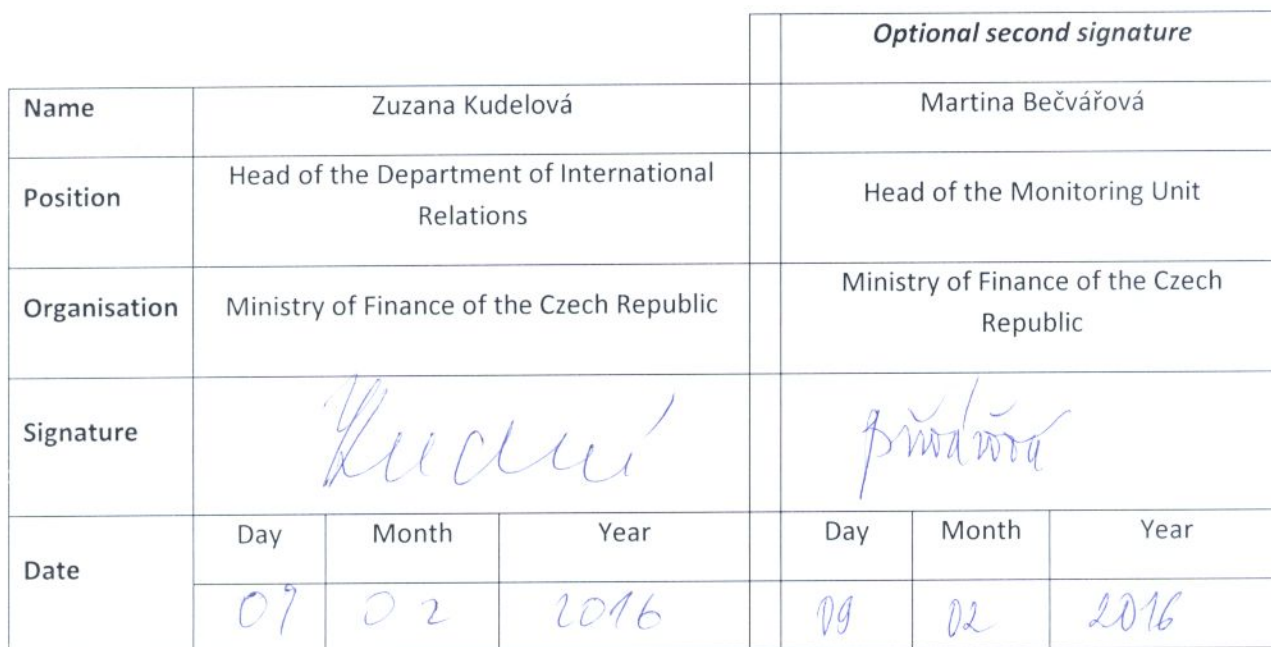 Optional second signature
Name Zuzana Kudelová Martina Bečvářová
Position Head of the Department of International
Relations Head of the Monitoring Unit
Organisation Ministry of Finance of the Czech Republic Ministry of Finance of the Czech
Republic
Signature
Date Day Month Year Day Month Year
02 2016 09 02 2016